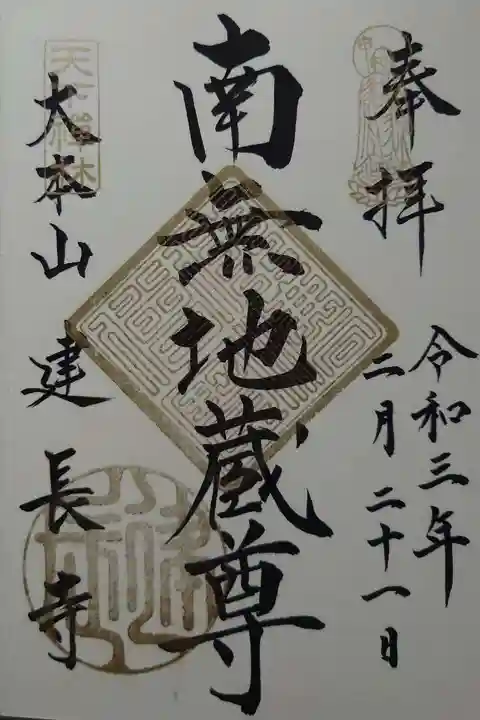 奉拝
令和三年
二月二十一日
南無地蔵尊
天下禅林
大本山建長寺